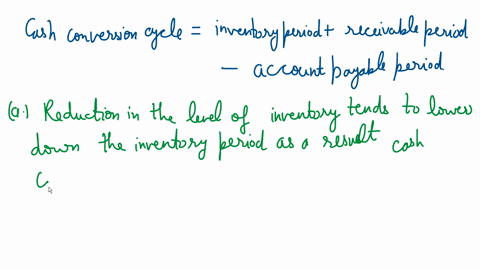 Cash conversion cycle = inventory period + receivable period
− account payable period
(a.) Reduction in the level of inventory tends to lower
down the inventory period as a result cash
C